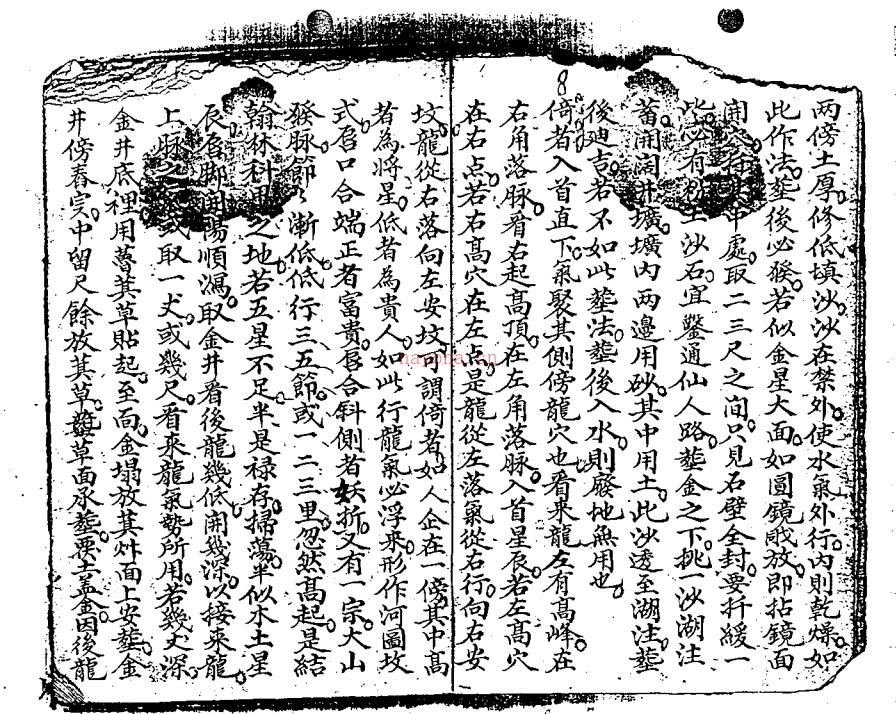 8
兩傍土厚修低填沙沙在禁外使水氣外行內則乾燥如
此作法塟後必發若似金星大面如圓鏡敞放即拈鏡面
開穴行其中處取二三尺之間只見石壁全封要扦緩一
此必有土沙石宜鑿通仙人路塟金之下挑一沙湖注
蓄開闊井壙壙內兩邊用砂其中用土此沙透至湖注塟
後廸吉若不如此塟法塟後入水則廢地無用也
倚者入首直下氣聚其側傍龍穴也看来龍左有高峰在
右角落脉看右起高頂在左角落脉入首星辰若左高穴
在右点若右高穴在左点是龍從左落氣從右行向右安
坟龍從右落向左安坟可謂倚者如人企在一傍其中高
者為將星低者為貴人如此行龍氣必浮来形作河圖坟
式唇口合端正者富貴唇合斜側者妖折又有一宗大山
發脉節々漸低低行三五節或一二三里忽然高起是結
翰林科甲之地若五星不足半是禄存掃蕩半似水土星
辰唇脚開陽順瀉取金井看後龍幾低開幾深以接来龍
上脉之或取一丈或幾尺看来龍氣勢所用若幾丈深
金井底裡用蓍萁草貼起至面金塌放萁灶面上安塟金
井傍舂实中留尺餘放萁草塟草面承塟要土盖金因後龍
naepha.cn